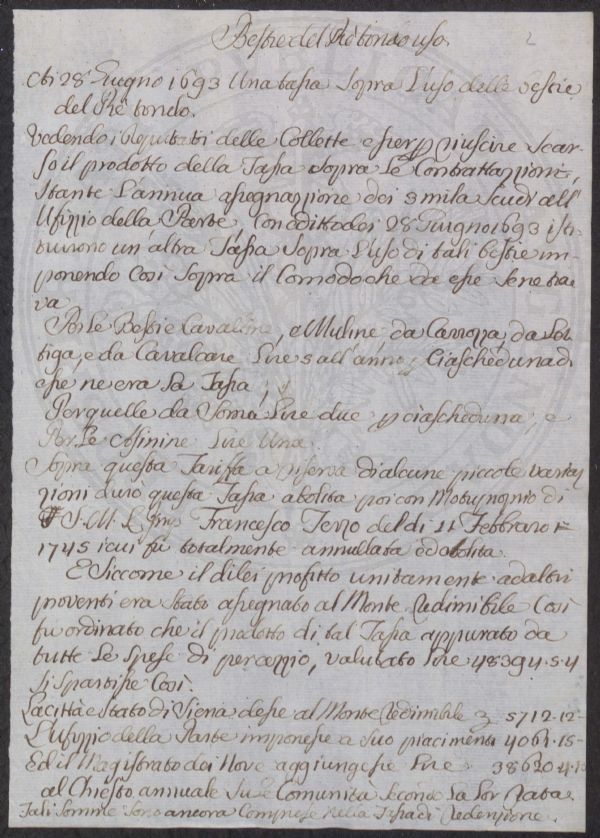 Bestie del Piè tondo uso. 2
Adì 28 Giugno 1693 Una tassa Sopra L'uso delle bestie
del Piè tondo.
Vedendo i Deputati delle Collette esser p riuscire Scar-
so il prodotto della Tassa Sopra Le Contrattazioni,
Stante L'annua assegnazione dei 3 mila Scudi all'
Ufizio della Parte, Con editto dei 28 Giugno 1693 isti-
tuirono un'altra Tassa Sopra L'uso di tali bestie im-
ponendo Così Sopra il Comodo che da esse Se ne tra-
va
Per Le Bestie Cavalline, o Muline, da Carrozza, da Let-
tiga, e da Cavalcare Lire 3 all'anno p Ciascheduna d
esse ne era La Tassa;
Per quelle da Soma Lire due p ciascheduna, e
Per Le Asinine Lire Una.
Sopra questa Tariffa a riserva di alcune piccole varia-
zioni durò questa Tassa abolita poi con Motuproprio di
S. M. L. Francesco Terzo del dì 11 Febbraro
1745 i cui fù totalmente annullata ed abolita.
E Siccome il di lei profitto unitamente ad altri
proventi era Stato assegnato al Monte Redimibile Così
fù ordinato che il prodotto di tal Tassa appurato da
tutte Le Spese di percezzio, valutato Lire 48394.5.4
Si Spartisse Così.
La città e Stato di Siena desse al Monte Redimibile 5712.12-
L'ufizio della Parte imponesse a Suo piacimento 4061.15-
Ed il Magistrato dei Nove aggiungesse Lire 38620.4.
al Chiesto annuale Comunità Secondo La Lor Rata.
Tali Somme Sono ancora Comprese nella Tassa di Redenzione.